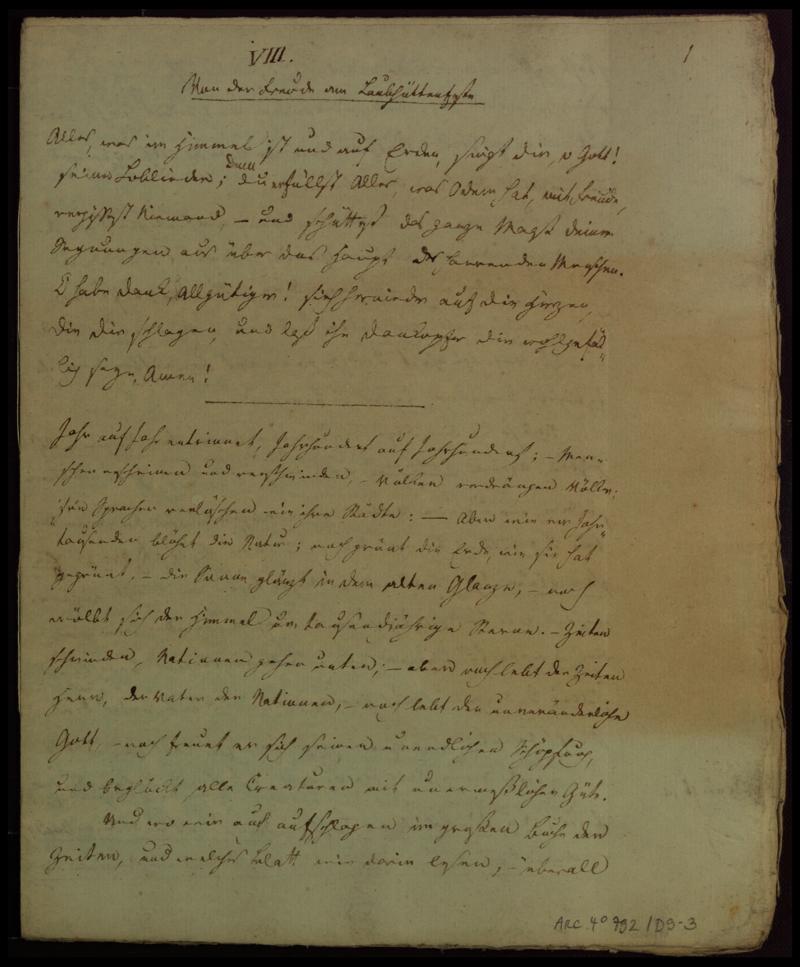 VIII.
1
Von der Freude am Laubhüttenfeste
Alles, was im Himmel ist und auf Erden, singt dir, o Gott!
seine Loblieder; denn du erfüllst Alles, was Odem hat, mit Freude,
vergissest Niemand, – und schüttest das ganze Maaß deiner
Segnungen aus über das Haupt des harrenden Menschen.
O habe Dank, Allgütiger! sieh hernieder auf die Herzen,
die dir schlagen, und laß ihr Dankopfer dir wohlgefäl„
lig seyn, Amen!
Jahr auf Jahr entrinnet, Jahrhundert auf Jahrhundert; – Men„
schen erscheinen und verschwinden, – Völker verdrängen Völker,
Sprachen verlöschen wie ihre Städte: – Aber wie vor Jahr„
tausenden blühet die Natur; noch grünt die Erde, wie sie hat
gegrünt, – die Sonne glänzt in dem alten Glanze, – noch
wölbt sich der Himmel um tausendjährige Sterne. – Zeiten
schwinden, Nationen gehen unter; – aber noch lebt der Zeiten
Herr, der Vater der Nationen, – noch lebt der unveränderliche
Gott, – noch freuet er sich seiner unendlichen Schöpfung,
und beglückt alle Creaturen mit unermeßlicher Güte.
Und wo wir auch aufschlagen im großen Buche der
Zeiten, und welches Blatt wir darin lesen, – überall
ARC. 4° 792 / D9-3